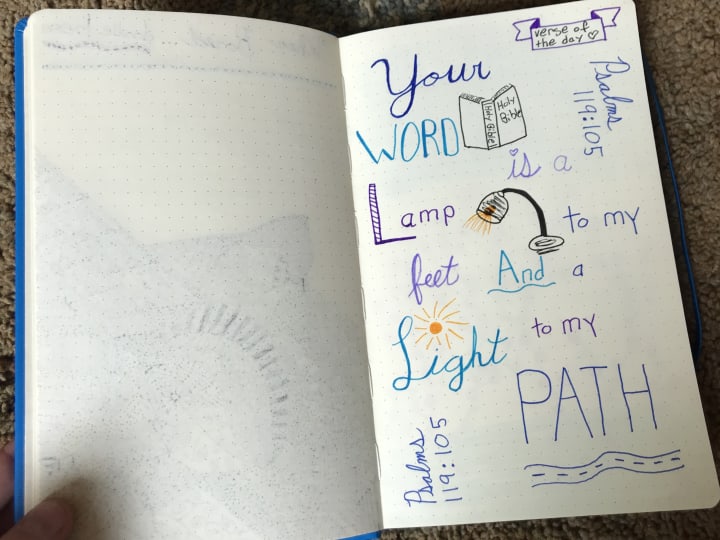 verse of
the day
Psalms
119:105
Your
WORD
Holy Bible
Holy
Bible
is a
Lamp to my
feet And a
Light to my
PATH
Psalms
119:105